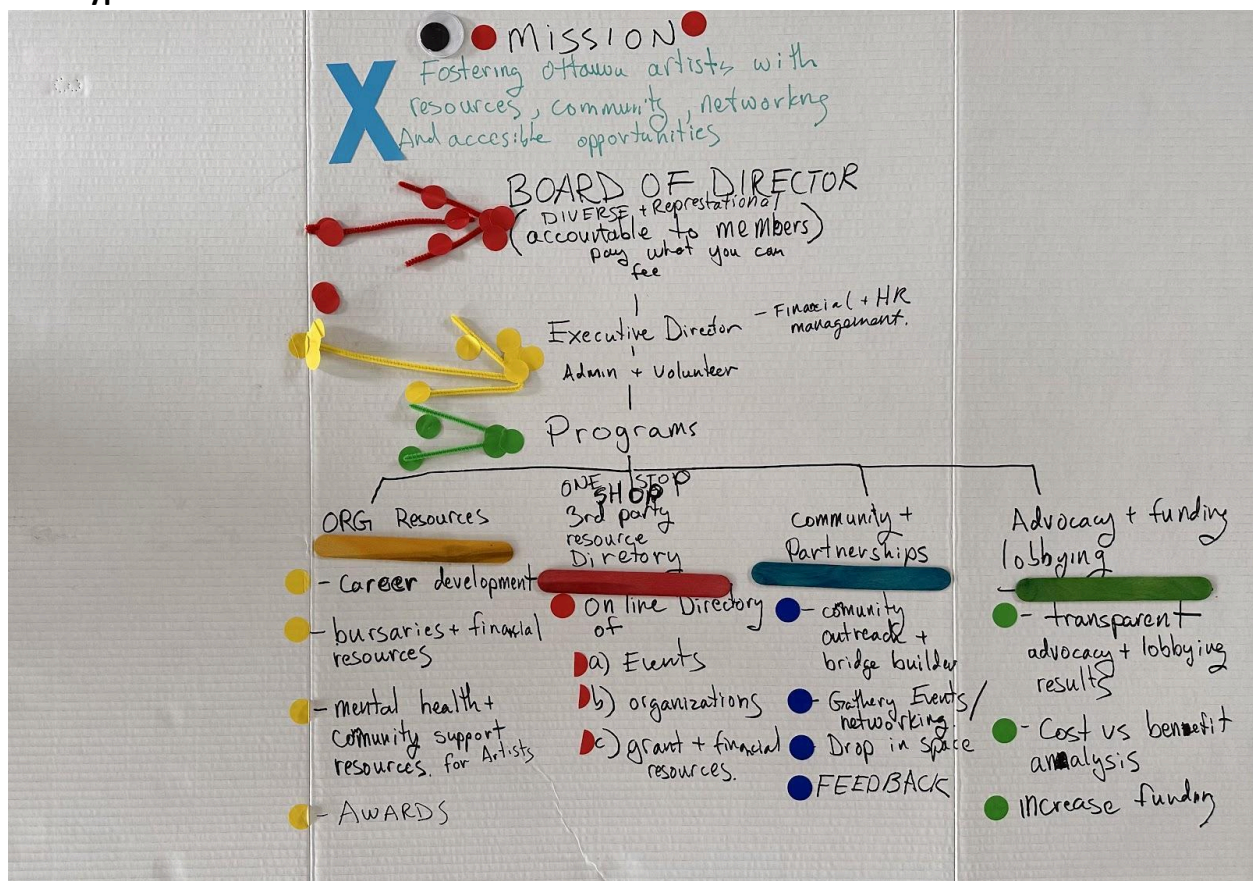 MISSION
X
Fostering Ottawa artists with
resources, community, networkng
And accesible opportunities
BOARD OF DIRECTOR
DIVERSE + Represtational
(accountable to members)
pay what you can
fee
Executive Director
- Financial + HR
management.
Admin + Volunteer
Programs
ORG Resources
- career development
- bursaries + financial
resources
- mental health +
comunity support
resources. for Artists
- AWARDS
ONE STOP
SHOP
3rd party
resource
Diretory
On line Directory
of
a) Events
b) organizations
c) grant + financial
resources.
Community +
Partnerships
- comunity
outreach +
bridge builder
- Gathery Events/
networking.
Drop in space
FEEDBACK
Advocacy + funding
lobbying
- transparent
advocacy + lobbying
results
- Cost vs benefit
analysis
increase funding